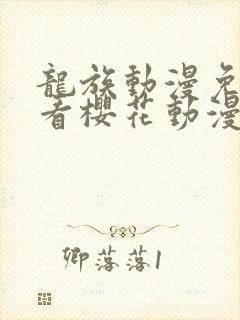 龍族動漫免
看櫻花動漫
卿落落1